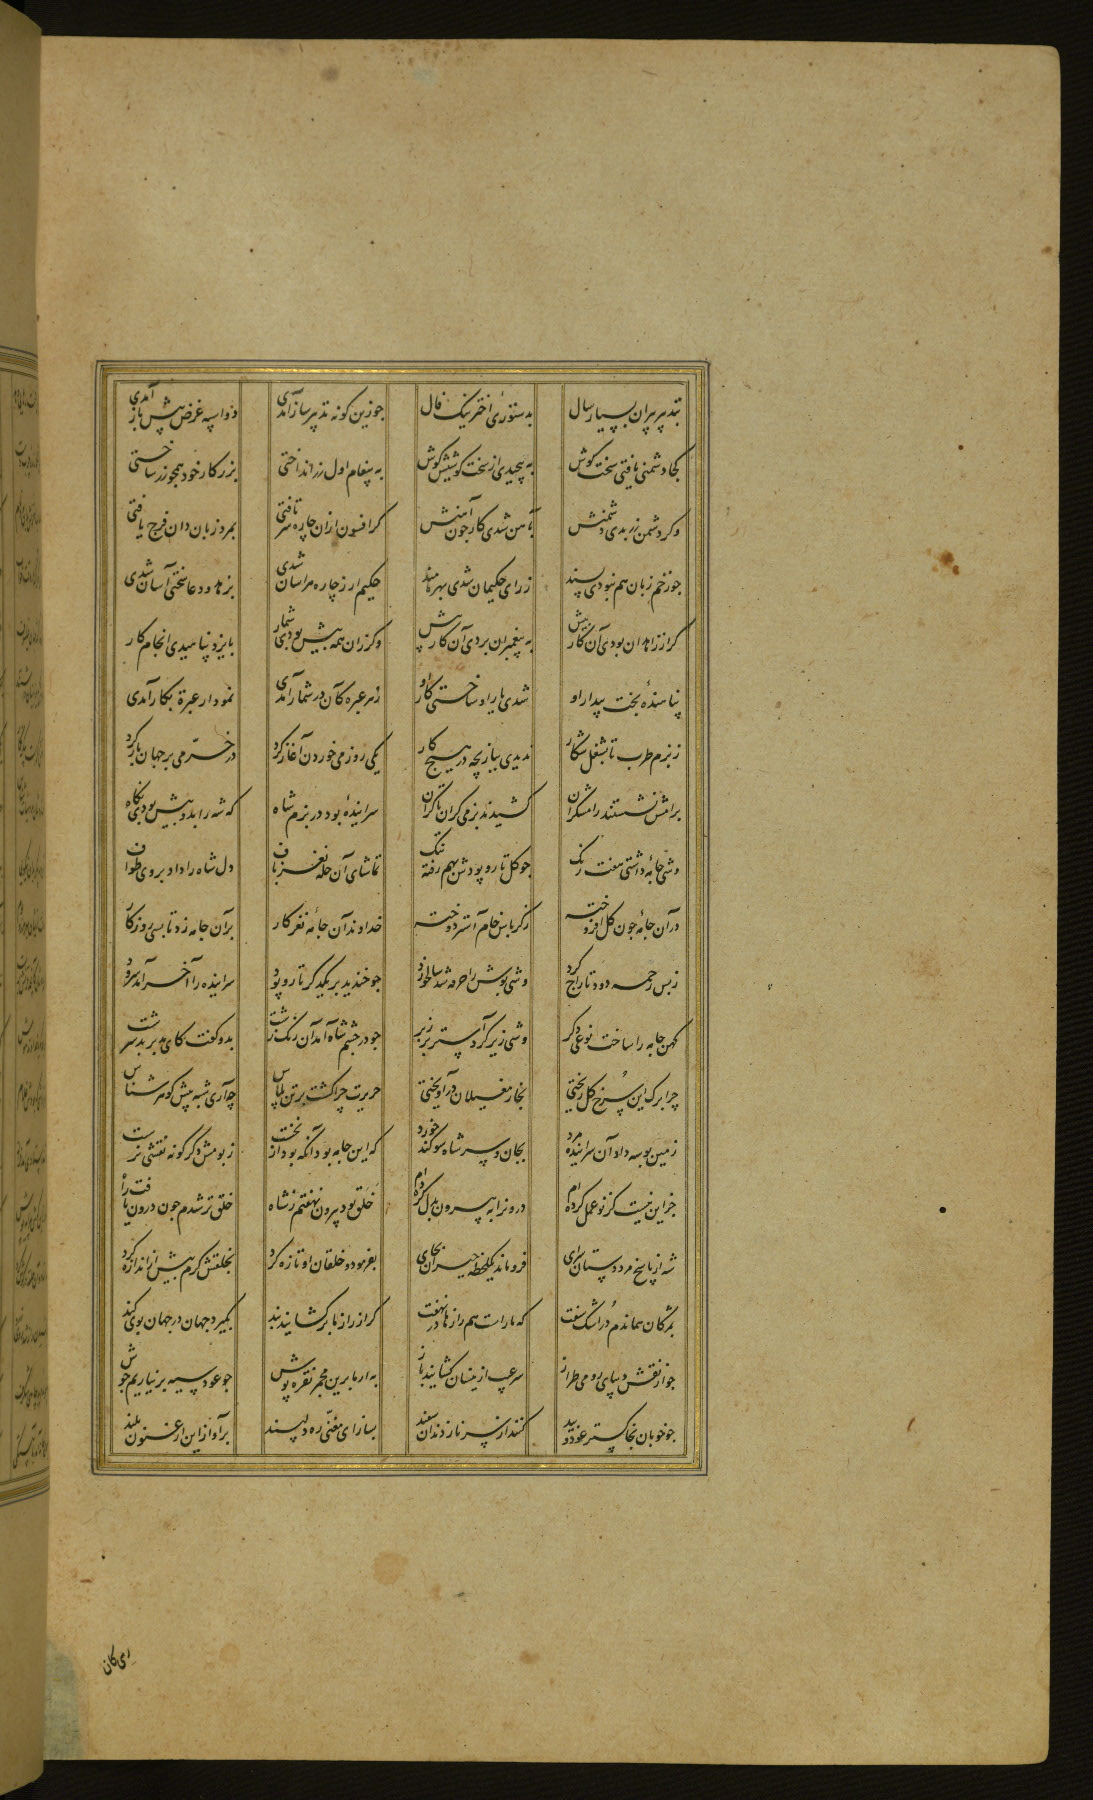 بتدبیر پیران بسیار سال بدستوری اختر نیک فال چو زین گونه تدبیر ساز آمدی دواسپه غرض پیش باز آمدی
کجا دشمنی یافتی سخت کوش به پیچیدی از سخت کوشیش کوش به پیغام اول زر انداختی بزر کار خود همچو زر ساختی
وکر دشمن زر بدی دشمنش بآهن شدی کار چون آهنش کر افسون ازان چاره سر تافتی بمرد زبان دان فرج یافتی
چو زخم زبان هم نبودی پسند ز رای حکیمان شدی بهره مند حکیم ار ز چاره هراسان شدی بزهد و دعا سختی آسان شدی
کر از زاهدان بودی آن کار بیش به پیغمبران بردی آن کار پیش وکر زان همه بیش بودی شمار بایزد پناهیدی انجام کار
پناهندهٔ بخت بیدار او شدی یار او ساختی کار او ز هر عبره کان در شمار آمدی نمودار عبرة بکار آمدی
ز بزم طرب تا بشغل شکار ندیدی ببازیچه در هیچ کار یکی روز می خوردن آغاز کرد در خرّمی بر جهان باز کرد
برامش نشستند رامشکران کشیدند بزمی کران تا کران سرایندهٔ بود در بزم شاه که شه را بدو بیش بودی نکاه
وشی جامهٔ داشتی هفت رنک چو کل تار و پودش بهم رفته تنک تماشای آن حله نغز باف دل شاه را داد بر وی طواف
در آن جامهٔ چون کل افروخته ز کرباس خام آستر دوخته خداوند آن جامهٔ نغز کار بر آن جامه زد تا بسی روزکار
ز بس زخمه دود تاراج کرد وشی پوش را حرفه شد سالخورد چو خندید بر یکدکر تار و پود سراینده را آخر آمد سرود
کهن جامه را ساخت نوعی دکر وشی زیر کرد آستر بر زبر چو در چشم شاه آمد آن رنک زشت بدو کفت کای مدبر بد سرشت
چرا برک این سرخ کل ریختی بخار مغیلان درآویختی حریرت چرا کشت بر تن پلاس چه آری شبه پیش کوهر شناس
زمین بوسه داد آن سراینده مرد بجان و سر شاه سوکند خورد که این جامه بود آنکه بود از نخست ز بومش دکر کونه نقشی نرست
جز این نیست کز نو عمل کرده ام درونرا به بیرون بدل کرده ام خلق بود بیرون نهفتم ز شاه خلق تر شدم چون درون یافت راه
شه از پاسخ مرد دستان سرای فرو ماند یکلحظه حیران بجای بفرمود و خلقان او تازه کرد بخلقش کرم بیش از اندازه کرد
بمژکان هماندم در اشک سفت که ما راست هم رازها در نهفت کر از راز ما برکشایند بند بکیرد جهان در جهان بوی کند
چو از نقش دیبای رومی طراز سر عیب از ینسان کشایند باز به ار ما برین مجمر نقره پوش چو عود سیه بر نیاریم جوش
چو خوبان بخاکستر عود و بید کنند از سر ناز دندان سفید بساز ای مغنّی ره دلپسند بر آواز این ارغنون بلند
ری کان